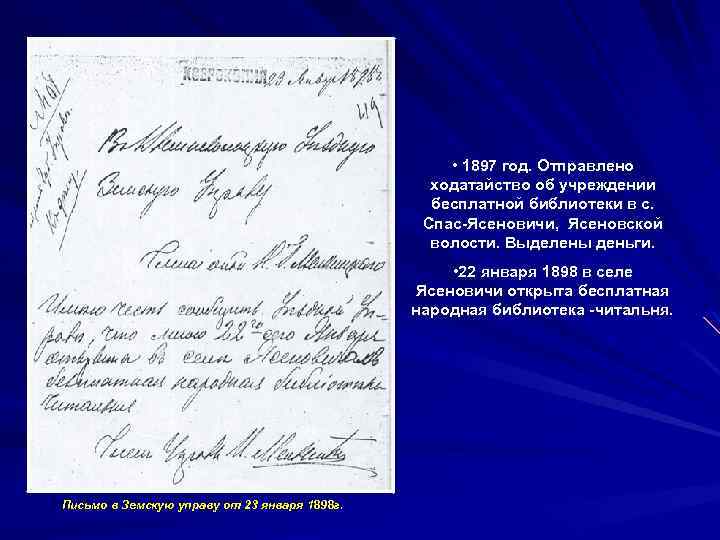 23 Января 1898 г.
49
Въ Вышневолоцкую Уѣздную
Земскую Управу
Члена оной
Имѣю честь сообщить Уѣздной Уп-
равѣ, что мною 22го сего Января
открыта въ селѣ Ясеновичахъ
безплатная народная библіотека
читальня
Членъ Управы
• 1897 год. Отправлено
ходатайство об учреждении
бесплатной библиотеки в с.
Спас-Ясеновичи, Ясеновской
волости. Выделены деньги.
• 22 января 1898 в селе
Ясеновичи открыта бесплатная
народная библиотека -читальня.
Письмо в Земскую управу от 23 января 1898 г.